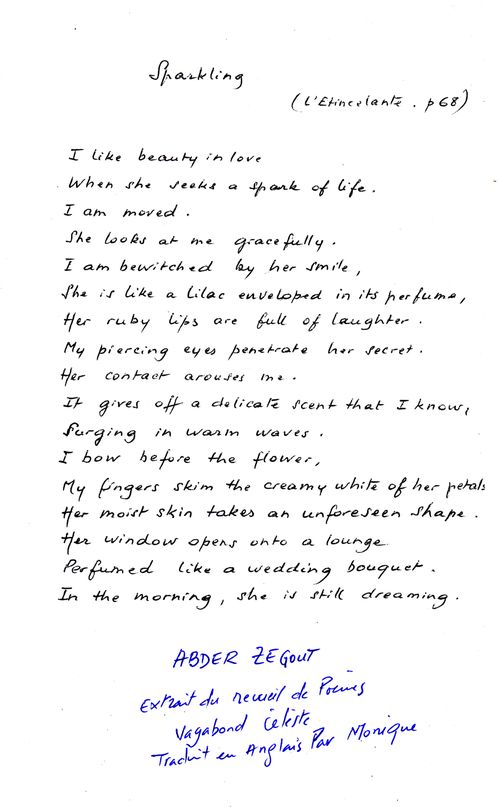 Sparkling
(L'Etincelante . p 68)
I like beauty in love
When she seeks a spark of life.
I am moved.
She looks at me gracefully.
I am bewitched by her smile,
She is like a lilac enveloped in its perfume,
Her ruby lips are full of laughter.
My piercing eyes penetrate her secret.
Her contact arouses me.
It gives off a delicate scent that I know,
Surging in warm waves.
I bow before the flower,
My fingers skim the creamy white of her petals
Her moist skin takes an unforeseen shape.
Her window opens onto a lounge
Perfumed like a wedding bouquet.
In the morning, she is still dreaming.
ABDER ZEGOUT
Extrait du recueil de Poèmes
Vagabond Céleste
Traduit en Anglais Par Monique